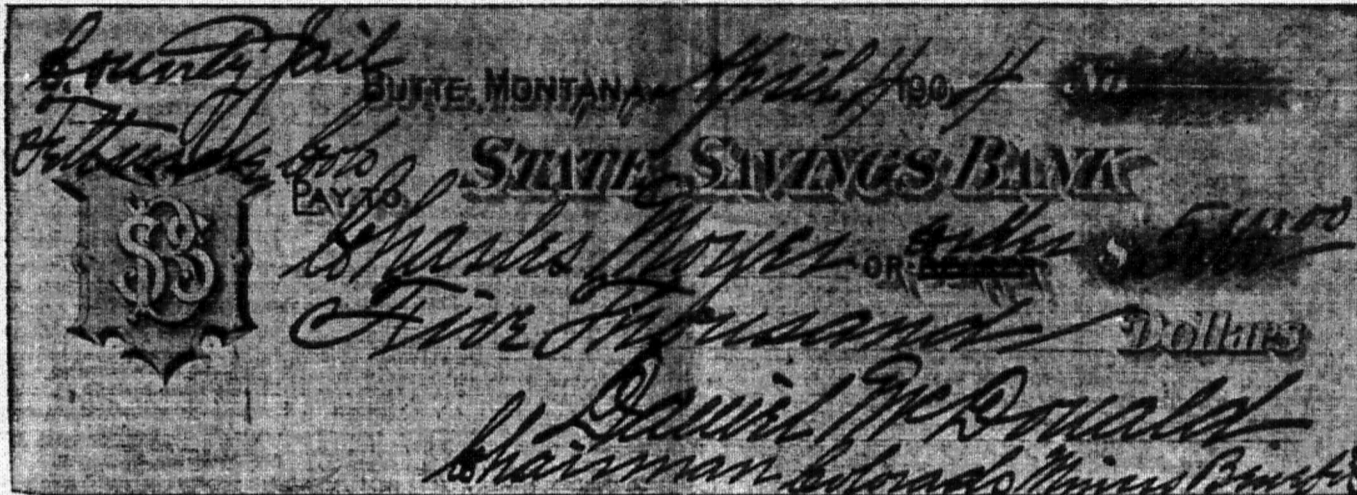 County Jail
BUTTE, MONTANA, April 4 1904 No
Colo
STATE SAVINGS BANK
PAY TO
Charles Moyer OR order $ 5000.00
Five Thousand Dollars
Daniel McDonald
Chairman Colorado Miners
SSB